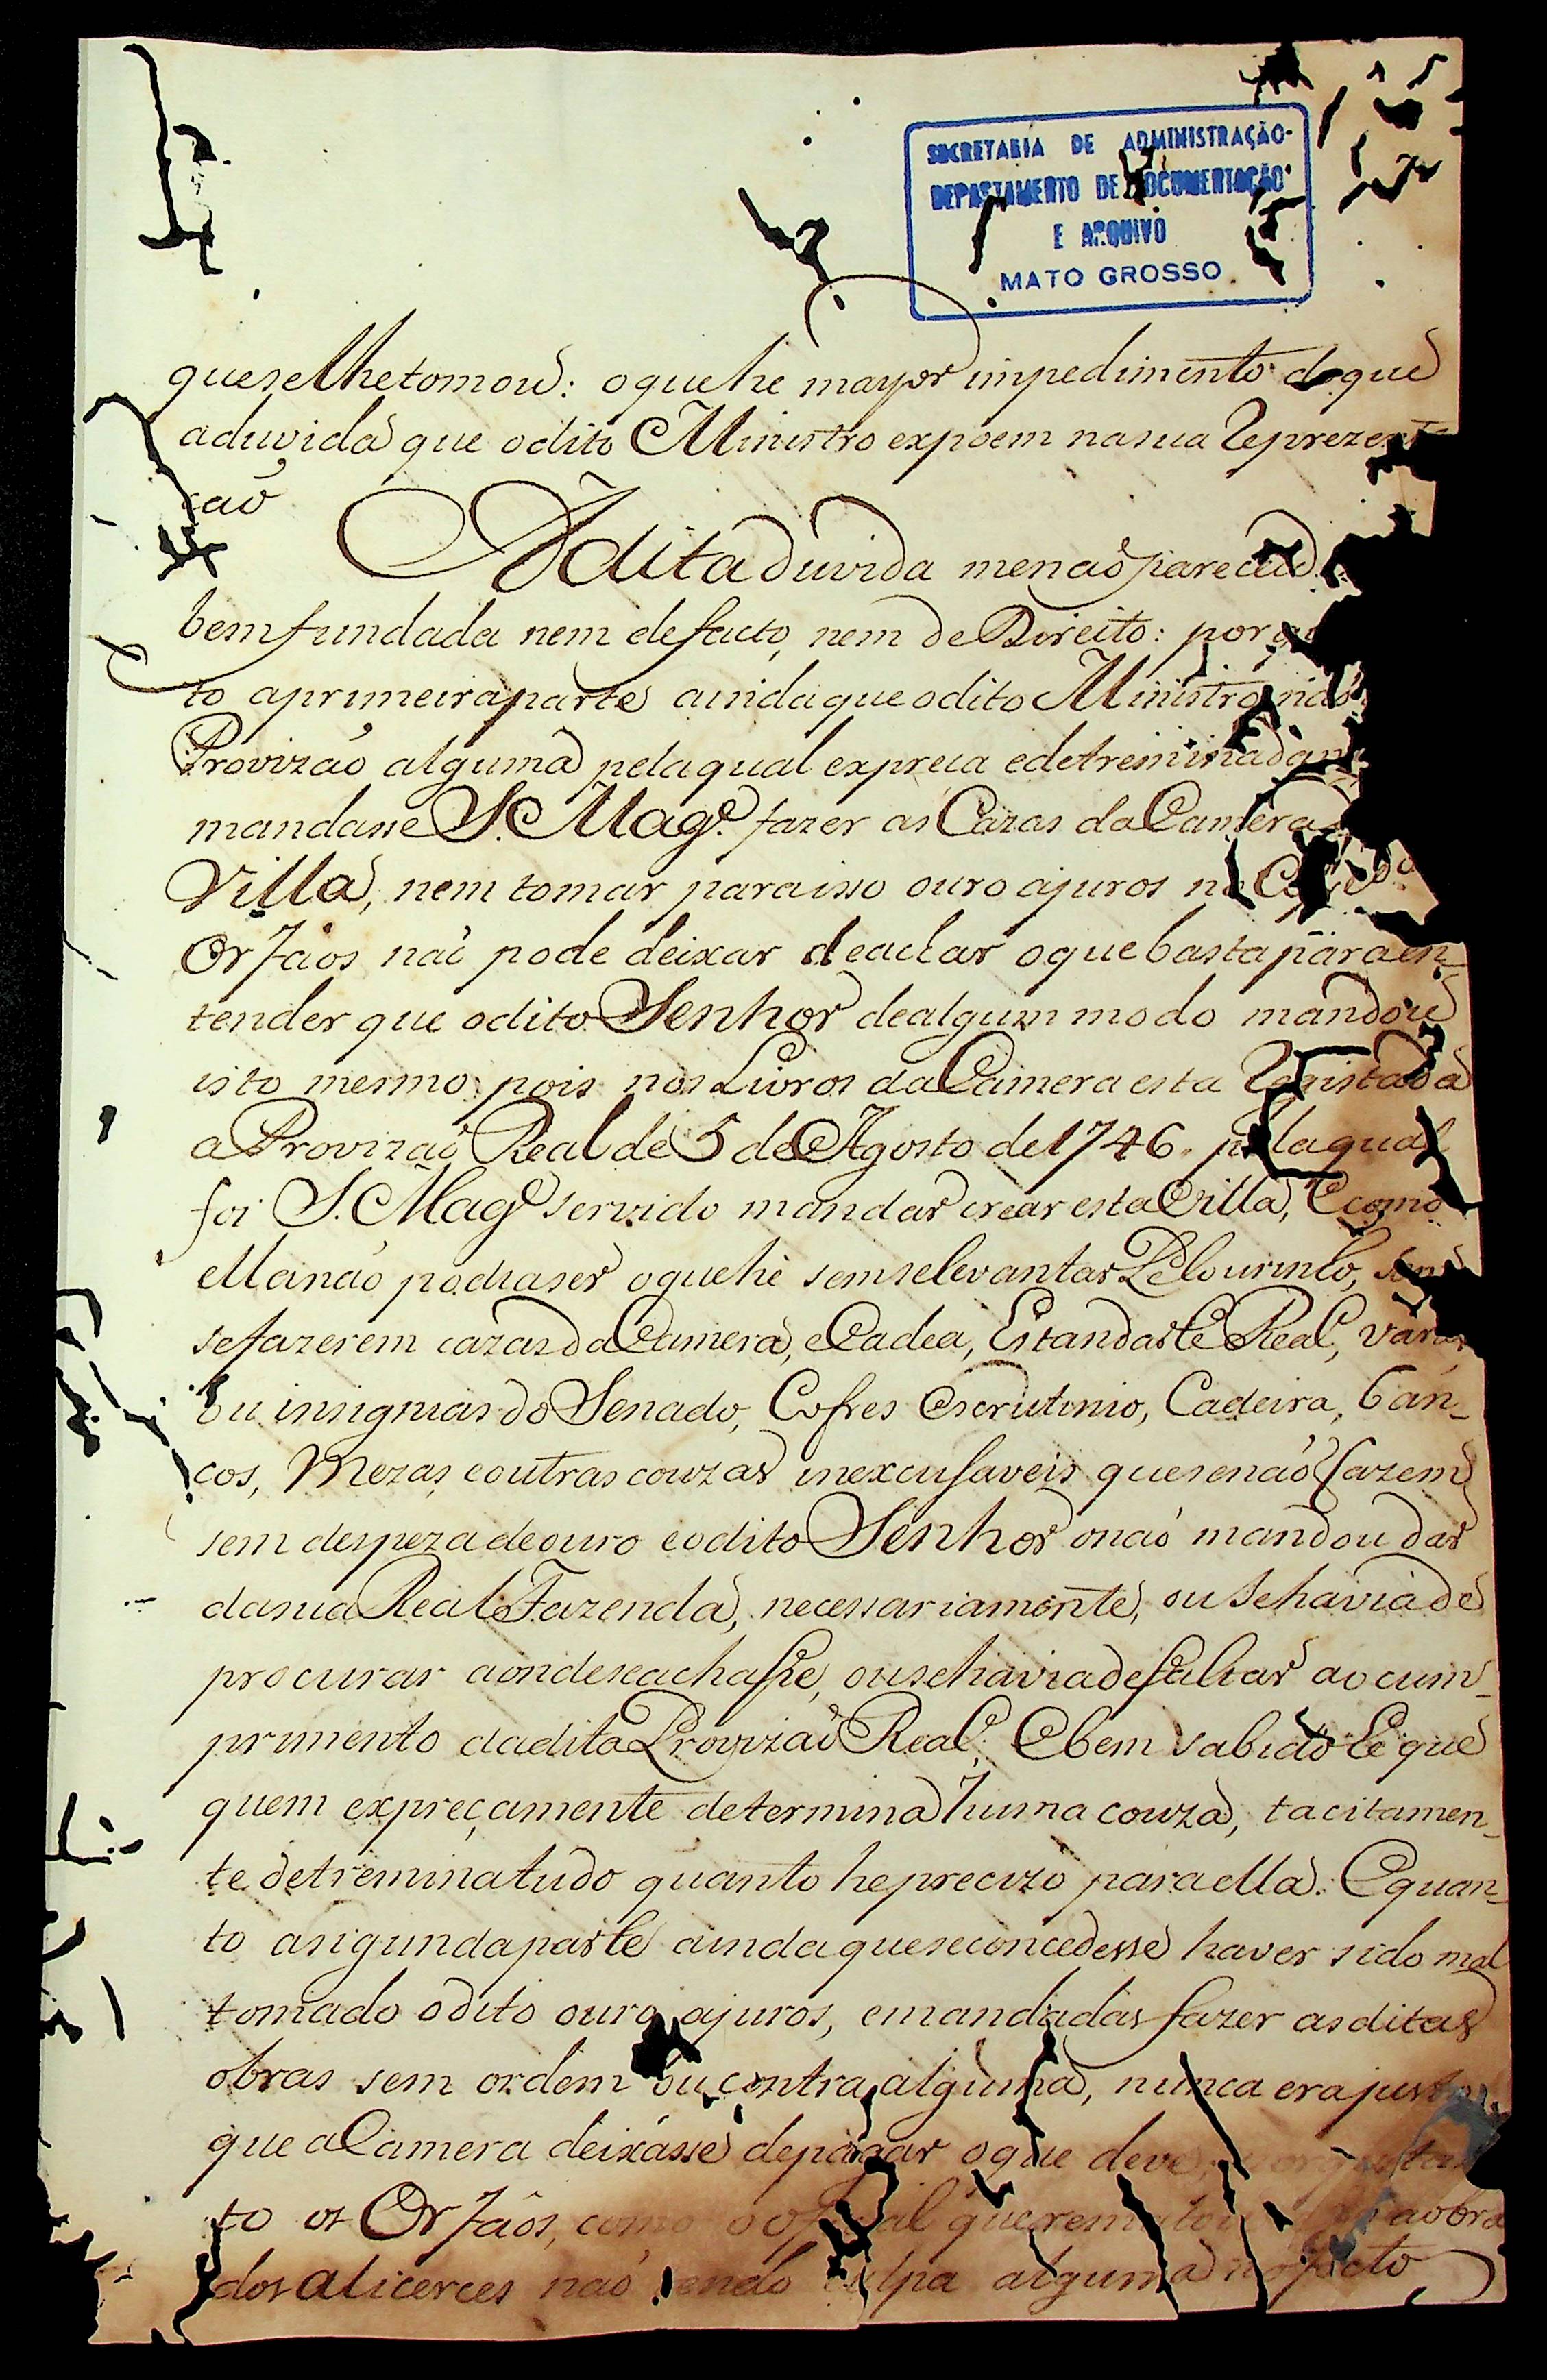 SECRETARIA DE ADMINISTRAÇÃO
DEPARTAMENTO DE DOCUMENTAÇÃO
E ARQUIVO
MATO GROSSO
que se lhe tomou: o que he mayor impedimento do que
a duvida que o dito Ministro expoem na sua Reprezenta
caõ
A dita duvida me naõ pareceo
bem fundada nem de facto, nem de Direito: porq
to a primeira parte ainda que o dito Ministro naõ
Provizaõ alguma pela qual expreça e detreminada
mandasse S. Mag.e fazer as Cazas da Camera
Villa, nem tomar para isso ouro a juros no Cofre do
Orfaos naõ pode deixar de achar o que basta para en_
tender que o dito Senhor de algum modo mandou
isto mesmo pois nos Livros da Camera esta Registada
a Provizaõ Real de 5 de Agosto de 1746. pela qual
foi S. Mag.e servido mandar crear esta Villa, E como
ella naõ podia ser o que hé sem se levantar Pelourinho, sem
se fazerem cazas da Camera, e Cadea, Estandarte Real, varas
ou insignias do Senado, Cofres Escrutinio, Cadeira, ban_
cos, Mezas, e outras couzas inexcusaveis que se naõ fazem
sem despeza de ouro e o dito Senhor o naõ mandou dar
da sua Real Fazenda, necessariamente, ou se havia de
procurar aonde se achasse, ou se havia de faltar ao cum_
primento da dita Provizaõ Real. E bem sabido he que
quem expreçamente determina huma couza, tacitamen_
te detremina tudo quanto he precizo para ella. E quan_
to a sigunda parte ainda que se concedesse haver sido mal
tomado o dito ouro a juros, e mandadas fazer as ditas
obras sem ordem ou contra alguma, nunca era justo
que a Camera deixásse de pagar o que deve
to os Orfâos, como o oficial que rematou a obra
dos alicerces naõ tendo culpa alguma no facto